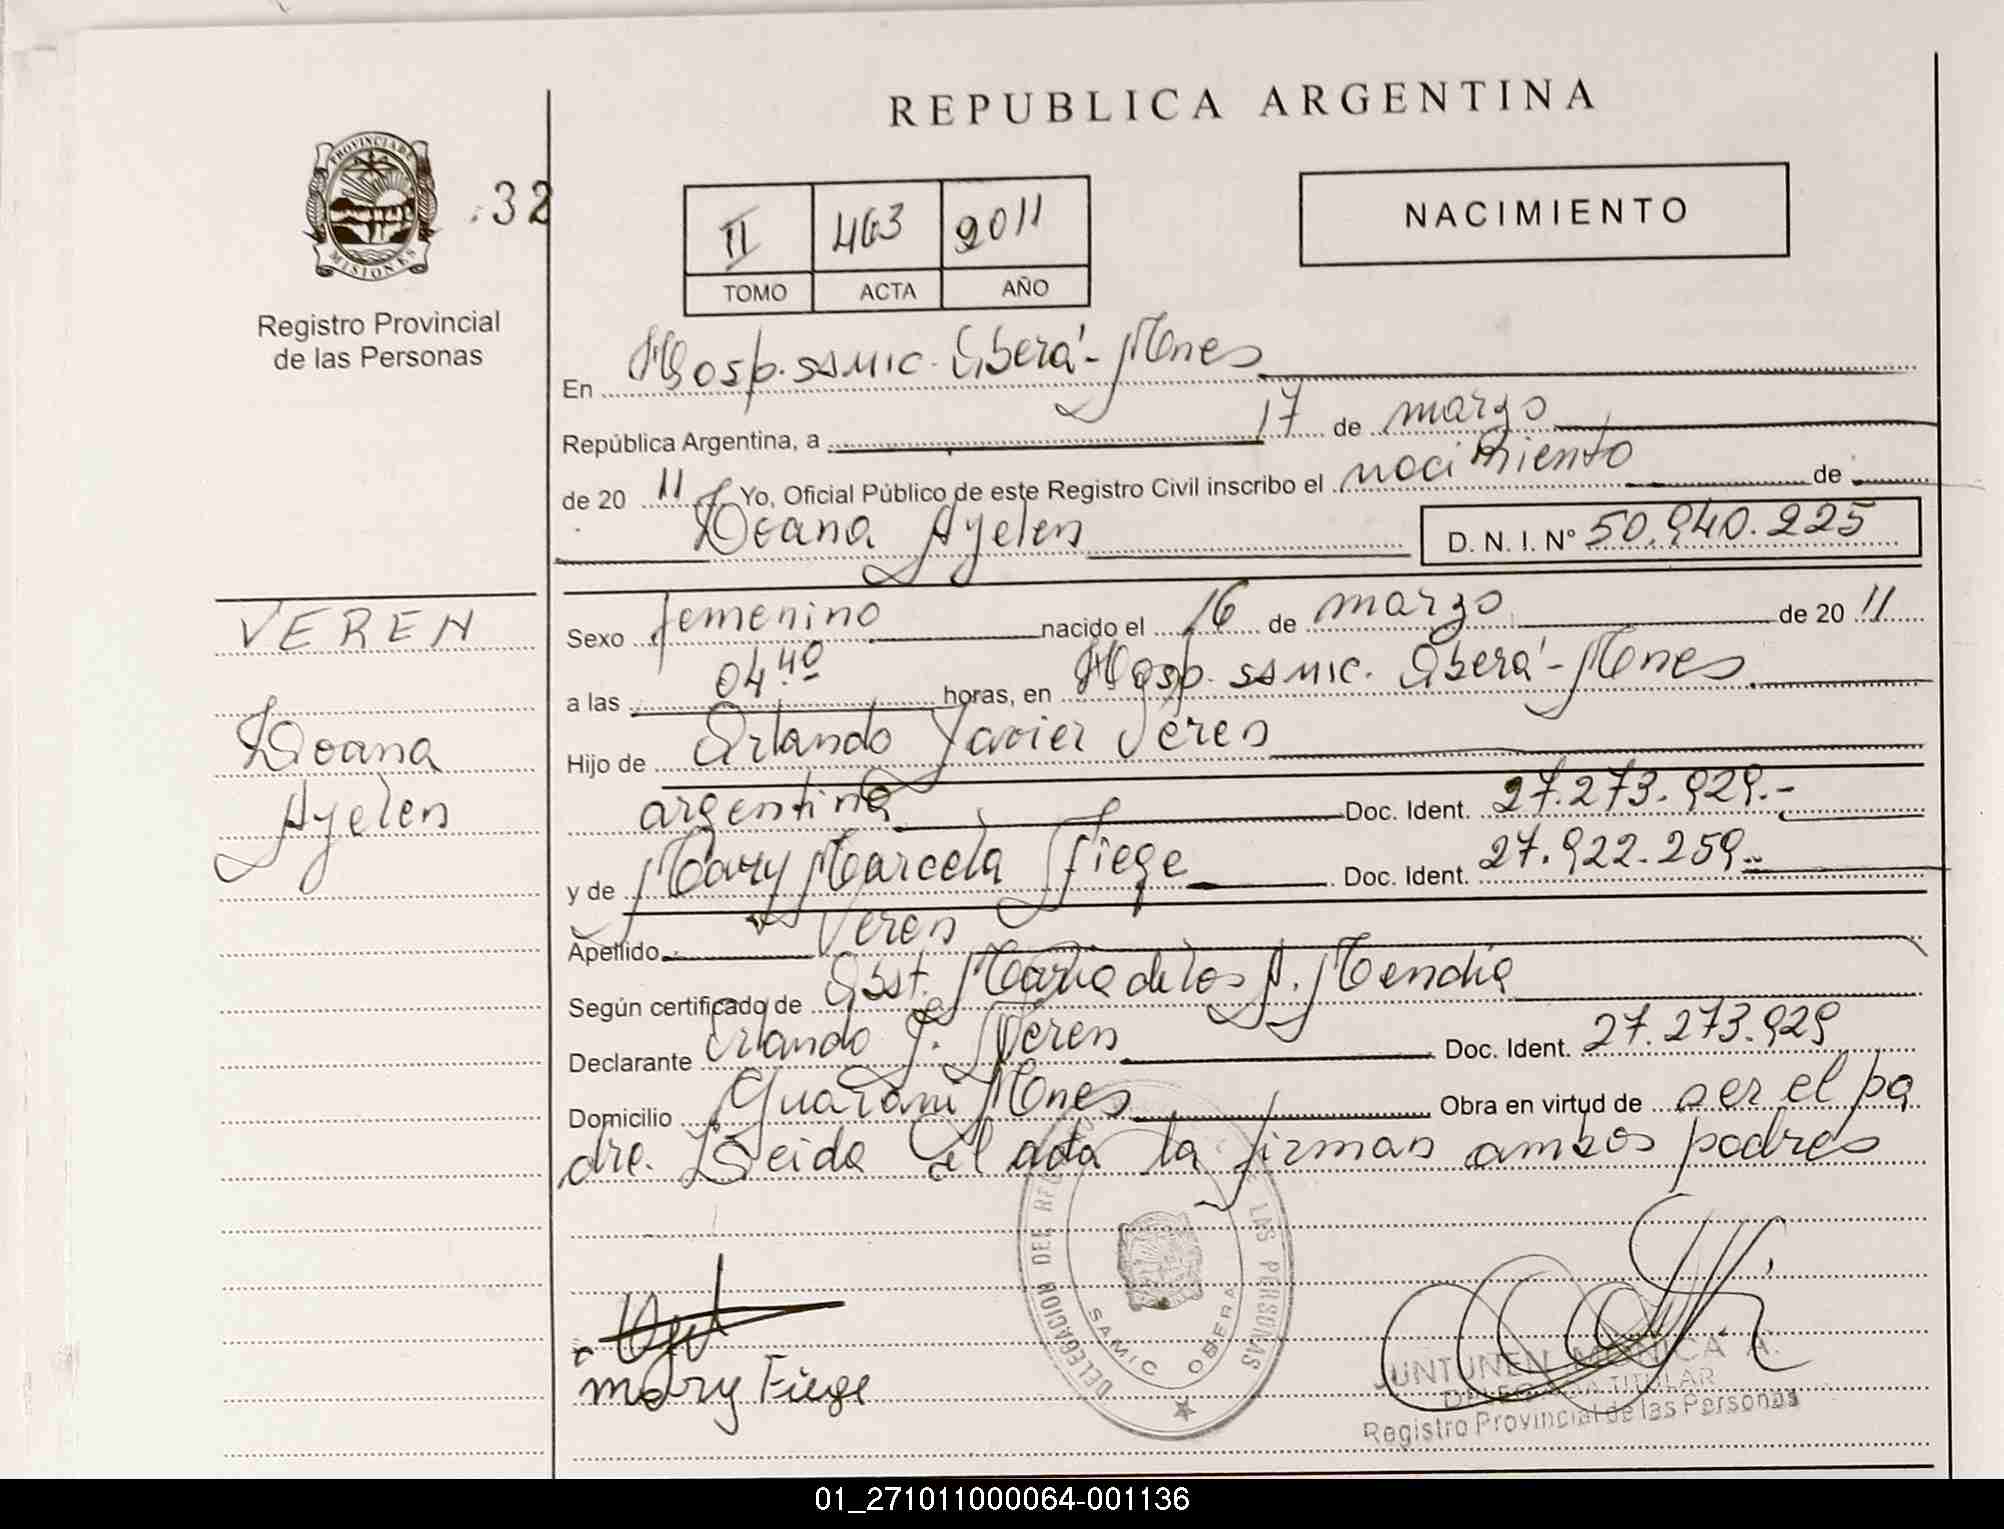 REPUBLICA ARGENTINA
PROVINCIA DE
MISIONES
32
Registro Provincial
de las Personas
II 463 2011
TOMO ACTA AÑO
NACIMIENTO
En Hosp. SAMIC. Oberá - Mnes
República Argentina, a 17 de marzo
de 20 11 Yo, Oficial Público de este Registro Civil inscribo el nacimiento de
Ioana Ayelen D. N. I. Nº 50.940.225
VEREN
Ioana
Ayelen
Sexo femenino nacido el 16 de marzo de 20 11
a las 04.40 horas, en Hosp. SAMIC. Oberá - Mnes.
Hijo de Orlando Javier Veren
argentino Doc. Ident. 27.273.929.-
y de Mary Marcela Fiege Doc. Ident. 27.922.259.-
Apellido Veren
Según certificado de Obst. Maria de los A. Mendia
Declarante Orlando J. Veren Doc. Ident. 27.273.929
Domicilio Guarani Mnes Obra en virtud de ser el pa
dre. Leida el acta la firman ambos padres
Mary Fiege
DELEGACION DEL REG LAS PERSONAS
SAMIC OBERA
JUNTUNEN MONICA A.
DELEGADA TITULAR
Registro Provincial de las Personas
01_271011000064-001136